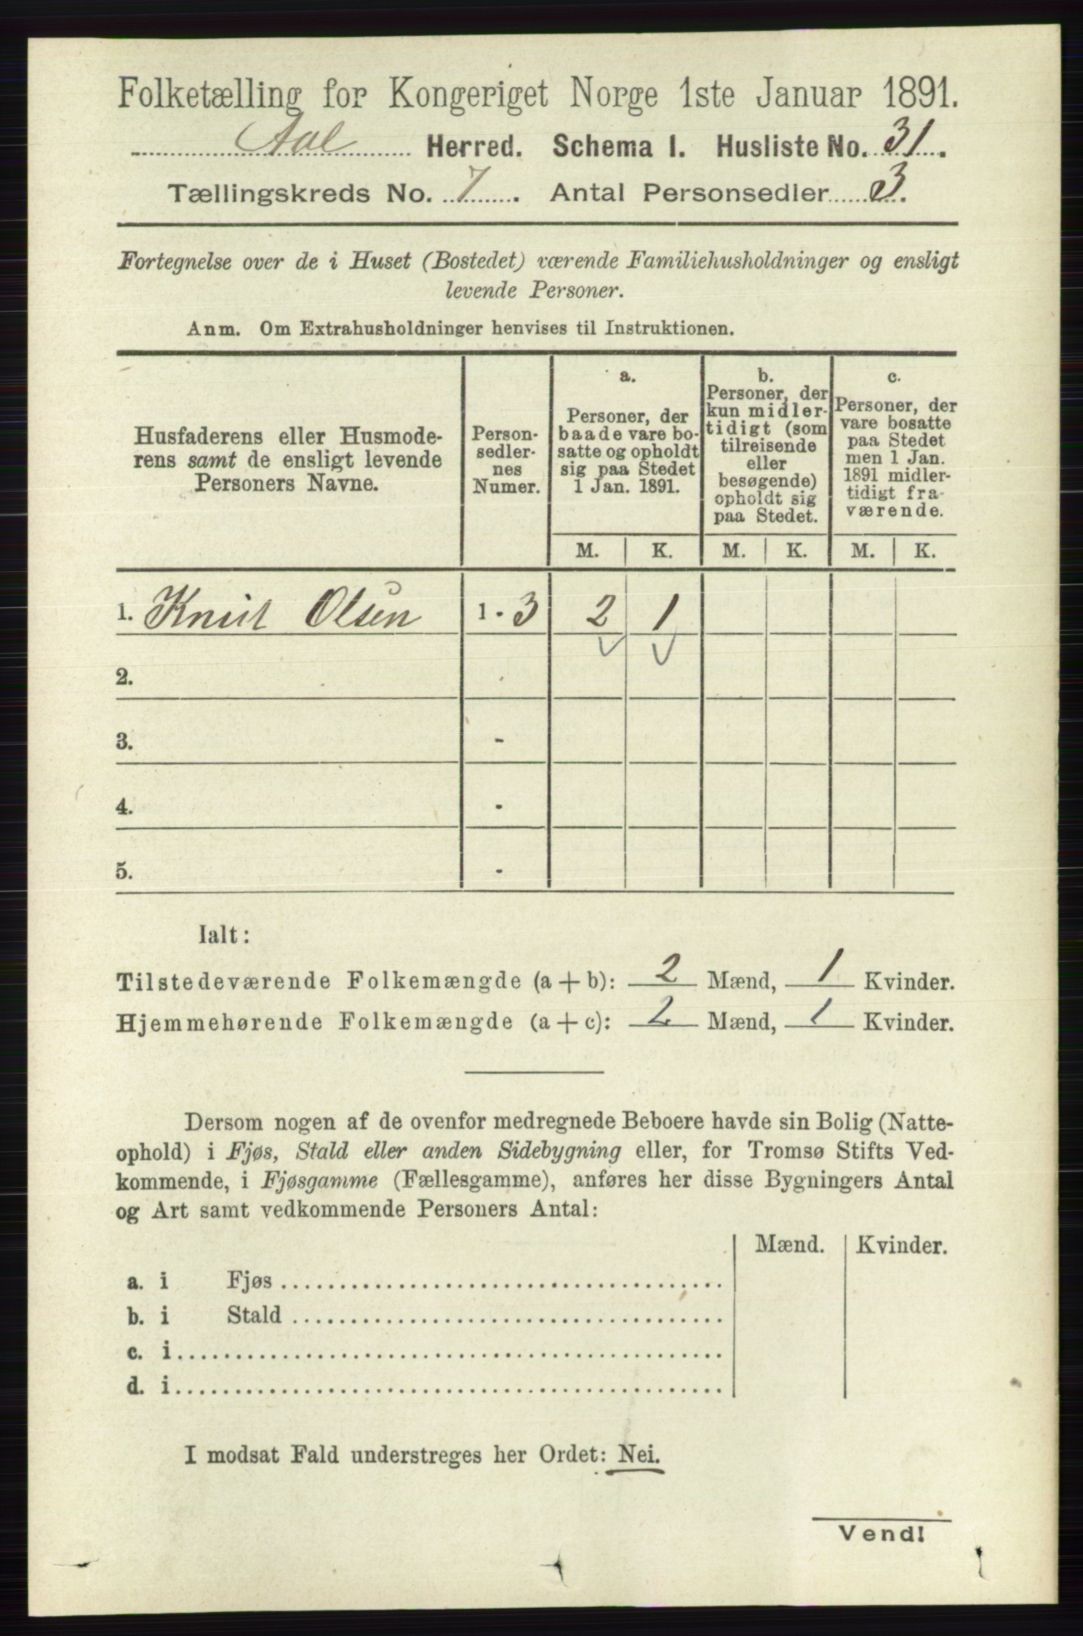 Folketælling for Kongeriget Norge 1ste Januar 1891.
Aal Herred. Schema I. Husliste No. 31.
Tællingskreds No. 7. Antal Personsedler 3.
Fortegnelse over de i Huset (Bostedet) værende Familiehusholdninger og ensligt
levende Personer.
Anm. Om Extrahusholdninger henvises til Instruktionen.
Husfaderens eller Husmode-
rens samt de ensligt levende
Personers Navne.
Person-
sedler-
nes
Numer.
a.
Personer, der
baade vare bo-
satte og opholdt
sig paa Stedet
1 Jan. 1891.
b.
Personer, der
kun midler-
tidigt (som
tilreisende
eller
besøgende)
opholdt sig
paa Stedet.
c.
Personer, der
vare bosatte
paa Stedet
men 1 Jan.
1891 midler-
tidigt fra-
værende.
M. K. M. K. M. K.
1. Knut Olsen 1 - 3 2 1
2.
3. -
4. -
5. -
Ialt:
Tilstedeværende Folkemængde (a + b): 2 Mænd, 1 Kvinder.
Hjemmehørende Folkemængde (a + c): 2 Mænd, 1 Kvinder.
Dersom nogen af de ovenfor medregnede Beboere havde sin Bolig (Natte-
ophold) i Fjøs, Stald eller anden Sidebygning eller, for Tromsø Stifts Ved-
kommende, i Fjøsgamme (Fællesgamme), anføres her disse Bygningers Antal
og Art samt vedkommende Personers Antal:
Mænd. Kvinder.
a. i Fjøs
b. i Stald
c. i
d. i
I modsat Fald understreges her Ordet: Nei.
Vend!